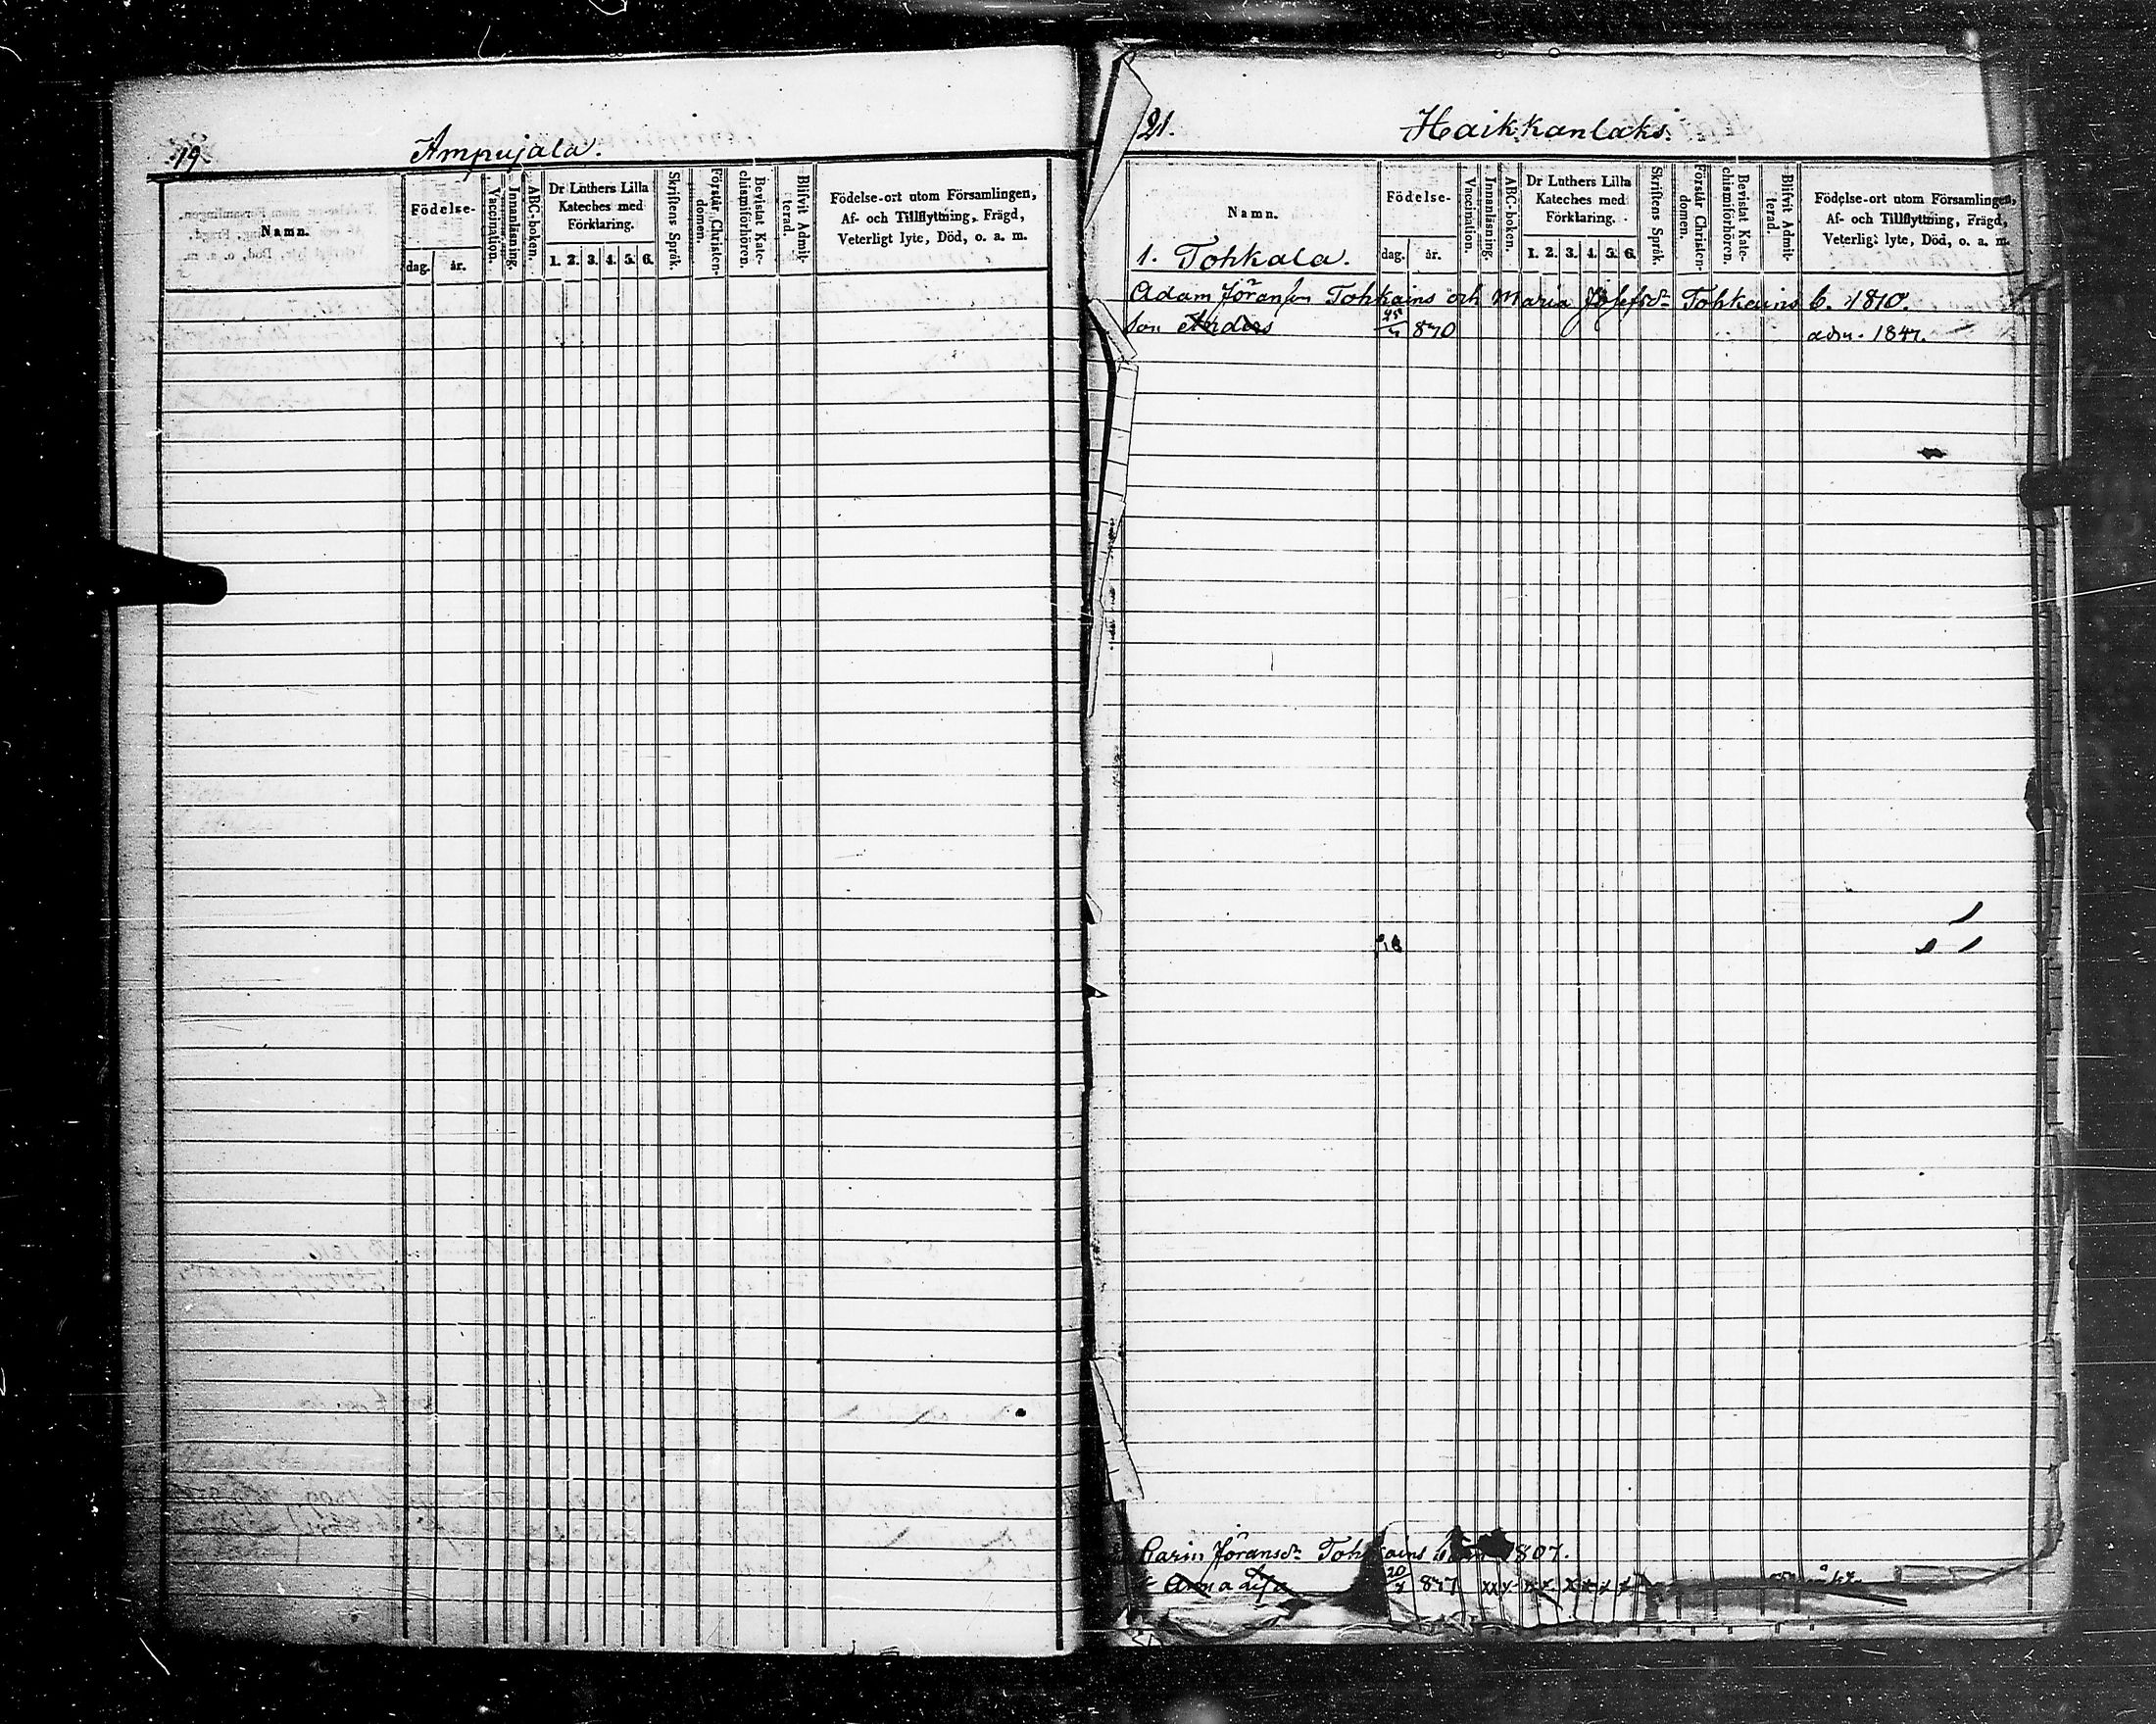 19. Ampujala.
Namn.
Födelse-
dag. år.
Vaccination.
Innanläsning.
ABC-boken.
Dr Luthers Lilla
Kateches med
Förklaring.
1. 2. 3. 4. 5. 6.
Skriftens Språk.
Förstår Christen-
domen.
Bevistat Kate-
chismiförhören.
Blifvit Admit-
terad.
Födelse-ort utom Församlingen,
Af- och Tillflyttning, Frägd,
Veterligt lyte, Död, o. a. m.
21. Haikkanlaks.
Namn.
Födelse-
dag. år.
Vaccination.
Innanläsning.
ABC-boken.
Dr Luthers Lilla
Kateches med
Förklaring.
1. 2. 3. 4. 5. 6.
Skriftens Språk.
Förstår Christen-
domen.
Bevistat Kate-
chismiförhören.
Blifvit Admit-
terad.
Födelse-ort utom Församlingen,
Af- och Tillflyttning, Frägd,
Veterligt lyte, Död, o. a. m.
1. Tohkala.
Adam Jöransson Tohkains och Maria Josefsdr Tohkains b. 1810.
Son Anders 870 adm. 1847.
Carin Joransdr Tohkains 1807.
Anna 20